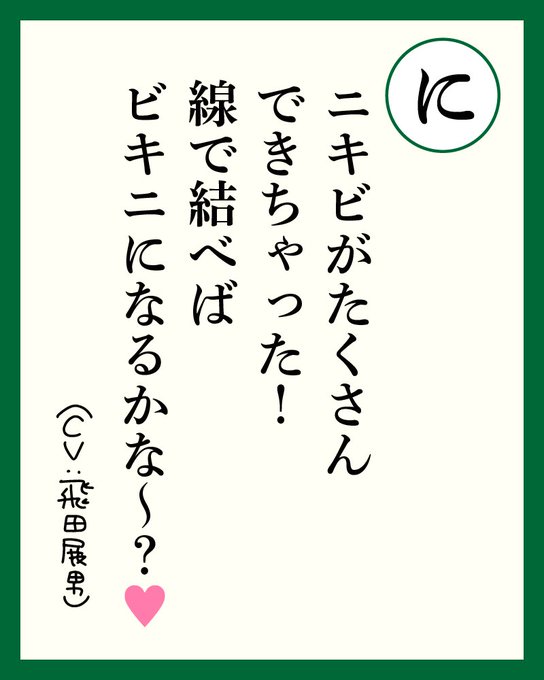 に
ニキビがたくさん
できちゃった！
線で結べば
ビキニになるかな〜？
（CV:飛田展男）